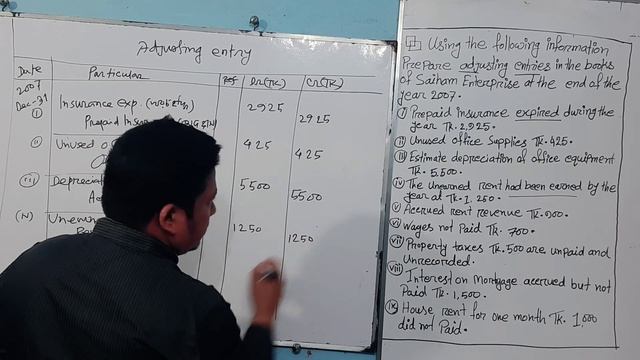 Adjusting entry
Date Particular Ref Dr(TK) Cr(TK)
2007
Dec-31
(i) Insurance exp. 2925
Prepaid Insu 2925
(ii) Unused o 425
425
(iii) Depreciat 5500
5500
(iv) Unearn 1250
1250
Using the following information
Prepare adjusting entries in the books
of Saiham Enterprise at the end of the
year 2007.
(i) Prepaid insurance expired during the
year TK. 2,925.
(ii) Unused office Supplies TK. 425.
(iii) Estimate depreciation of office equipment
TK. 5,500.
(iv) The Unearned rent had been earned by the
year at TK. 1,250.
(v) Accrued rent revenue TK.
(vi) Wages not Paid TK. 700.
(vii) Property taxes TK. 500 are unpaid and
Unrecorded.
(viii) Interest on Mortgage accrued but not
Paid TK. 1,500.
(ix) House rent for one month TK. 1,000
did not Paid.